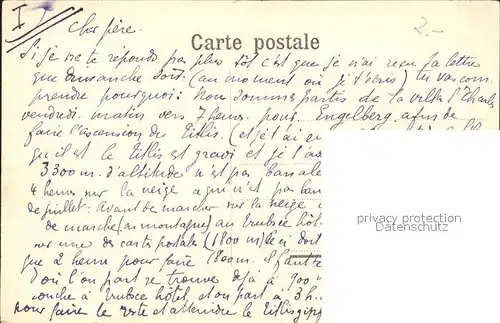 I
2.-
Cher frère.
Carte postale
Si je ne te réponds pas plus tôt c'est que je n'ai reçu ta lettre
que dimanche soir. (au moment où je t'écris) tu vas com
prendre pourquoi: Nous sommes partis de la villa
vendredi matin vers 7 heures pour Engelberg, afin de
faire l'ascension du Titlis. (et j'ai
qu'il est le Titlis est gravi et je l'as
3300 m. d'altitude n'est pas banale
4 heures sur la neige qui n'est pas ban
de juillet: avant de marcher sur la neige
de marche (en montagne) au Trubsee hôt
sur une de carte postale (1800 m) le doit
que 2 heures pour faire 1800 m. il faut
d'où l'on part se trouve déjà à 900
couche à Trubsee hôtel, et on part à 3 h.
pour faire le reste et atteindre le Titlis
privacy protection
Datenschutz